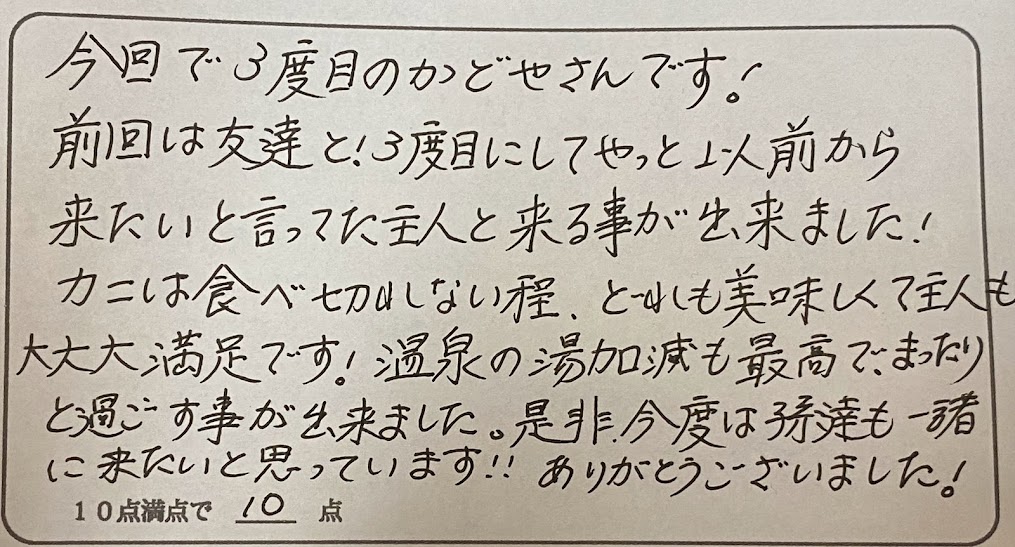 今回で3度目のかどやさんです!
前回は友達と!3度目にしてやっと1人前から
来たいと言ってた主人と来る事が出来ました!
カニは食べ切れない程、どれも美味しくて主人も
大大大満足です!温泉の湯加減も最高で、まったり
と過ごす事が出来ました。是非、今度は孫達も一諸
に来たいと思っています!!ありがとうございました!
10点満点で 10 点